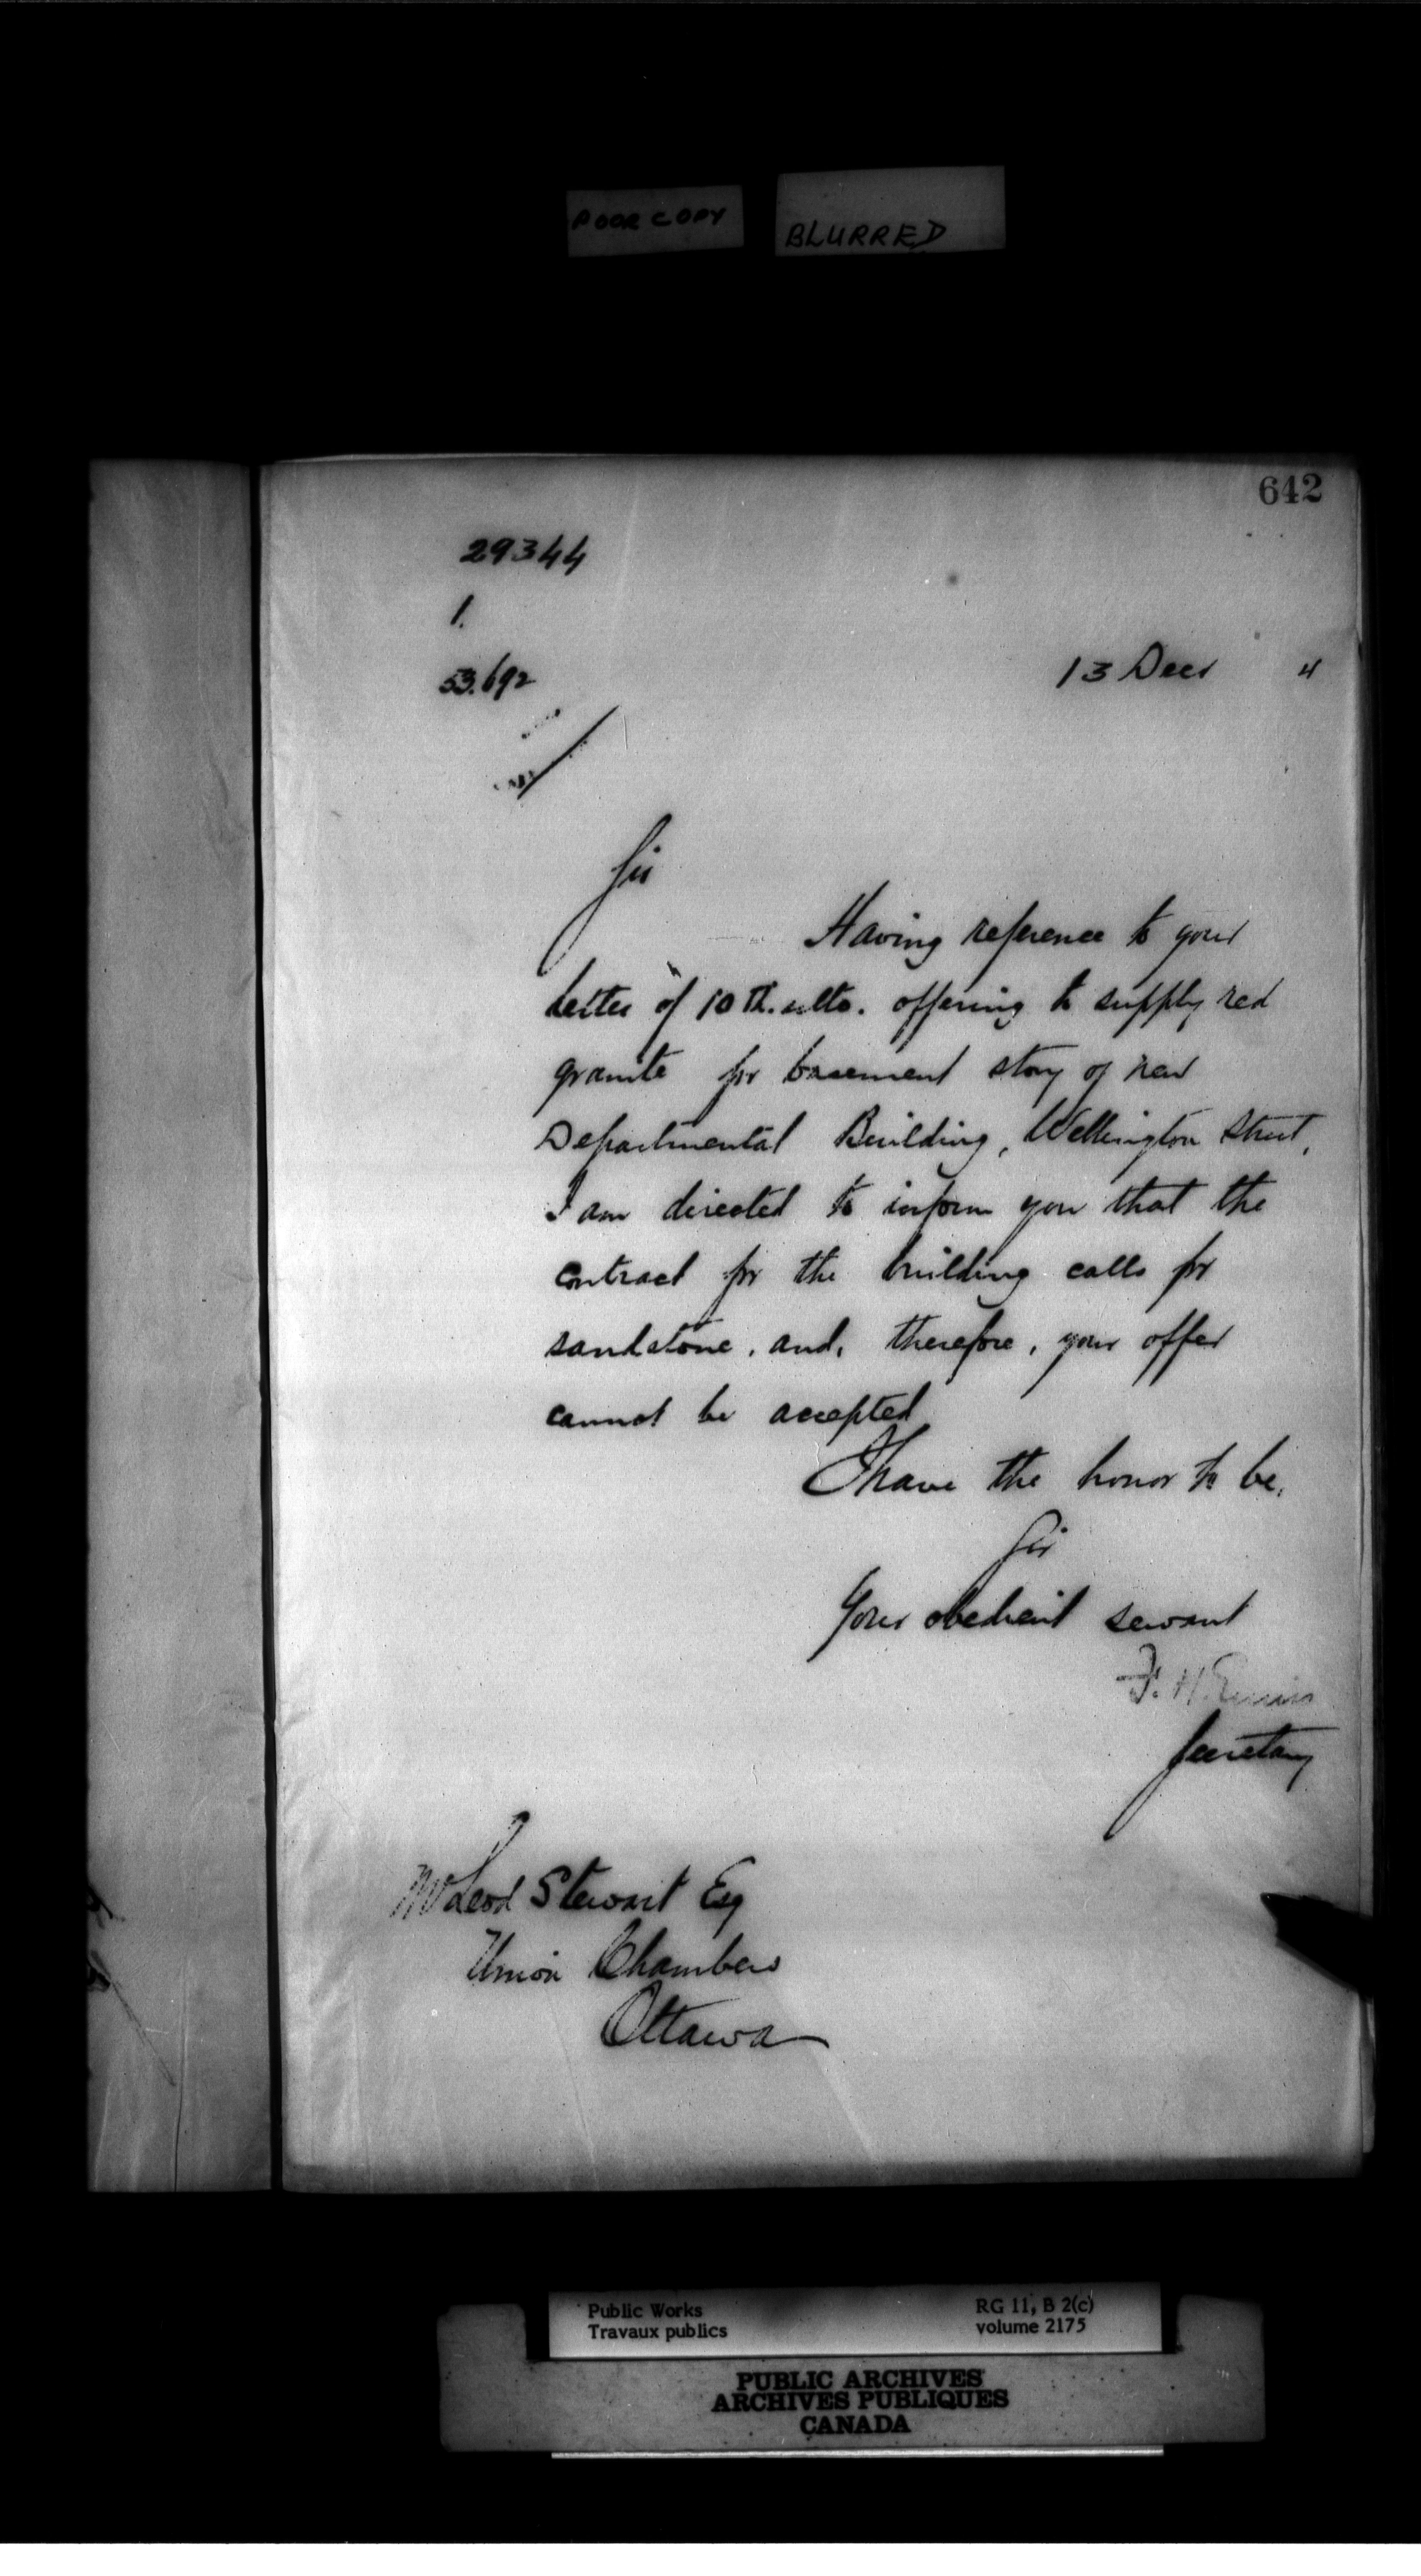 POOR COPY
BLURRED
642
29344
1.
53.692
13 Decr 4
Sir
Having reference to your
letter of 10th. ulto. offering to supply red
granite for basement story of new
Departmental Building, Wellington Street,
I am directed to inform you that the
contract for the building calls for
sandstone, and, therefore, your offer
cannot be accepted
I have the honor to be,
Sir
Your obedient servant
F. H. Ennis
Secretary
McLeod Stewart Esq
Union Chambers
Ottawa
Public Works
Travaux publics
RG 11, B 2(c)
volume 2175
PUBLIC ARCHIVES
ARCHIVES PUBLIQUES
CANADA